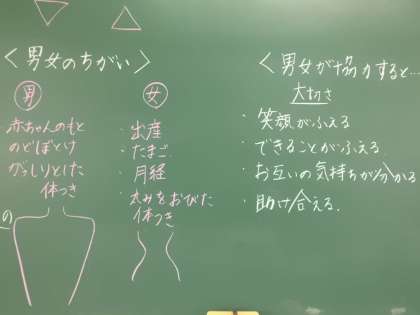 <男女のちがい>
男
赤ちゃんのもと
のどぼとけ
がっしりとした
体つき
の
女
・出産
・たまご
・月経
・丸みをおびた
体つき
<男女が協力すると…
大切さ
・笑顔がふえる
・できることがふえる
・お互いの気持ちが分かる
・助け合える.